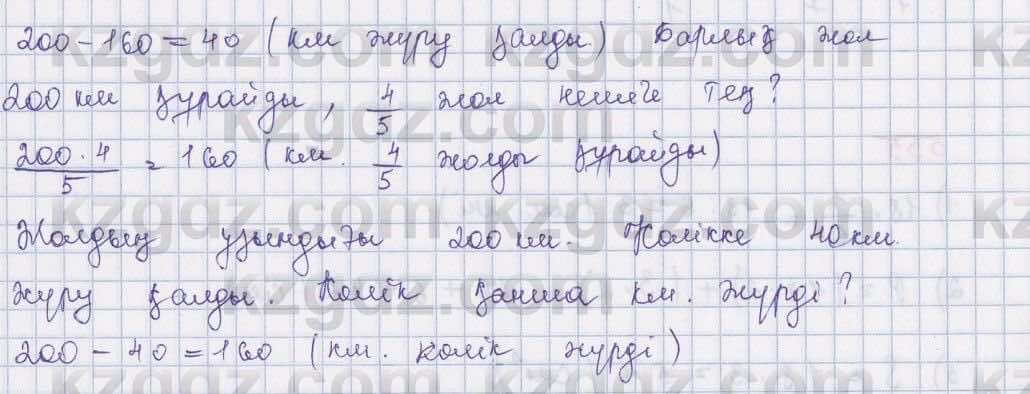 200 - 160 = 40 (км жүру қалды) Барлық жол
200 км құрайды, 4/5 жол нешеге тең?
200 · 4 / 5 = 160 (км. 4/5 жолды құрайды)
Жолдың ұзындығы 200 км. Көлікке 40 км.
жүру қалды. Көлік қанша км. жүрді?
200 - 40 = 160 (км. көлік жүрді)
kzgdz.com